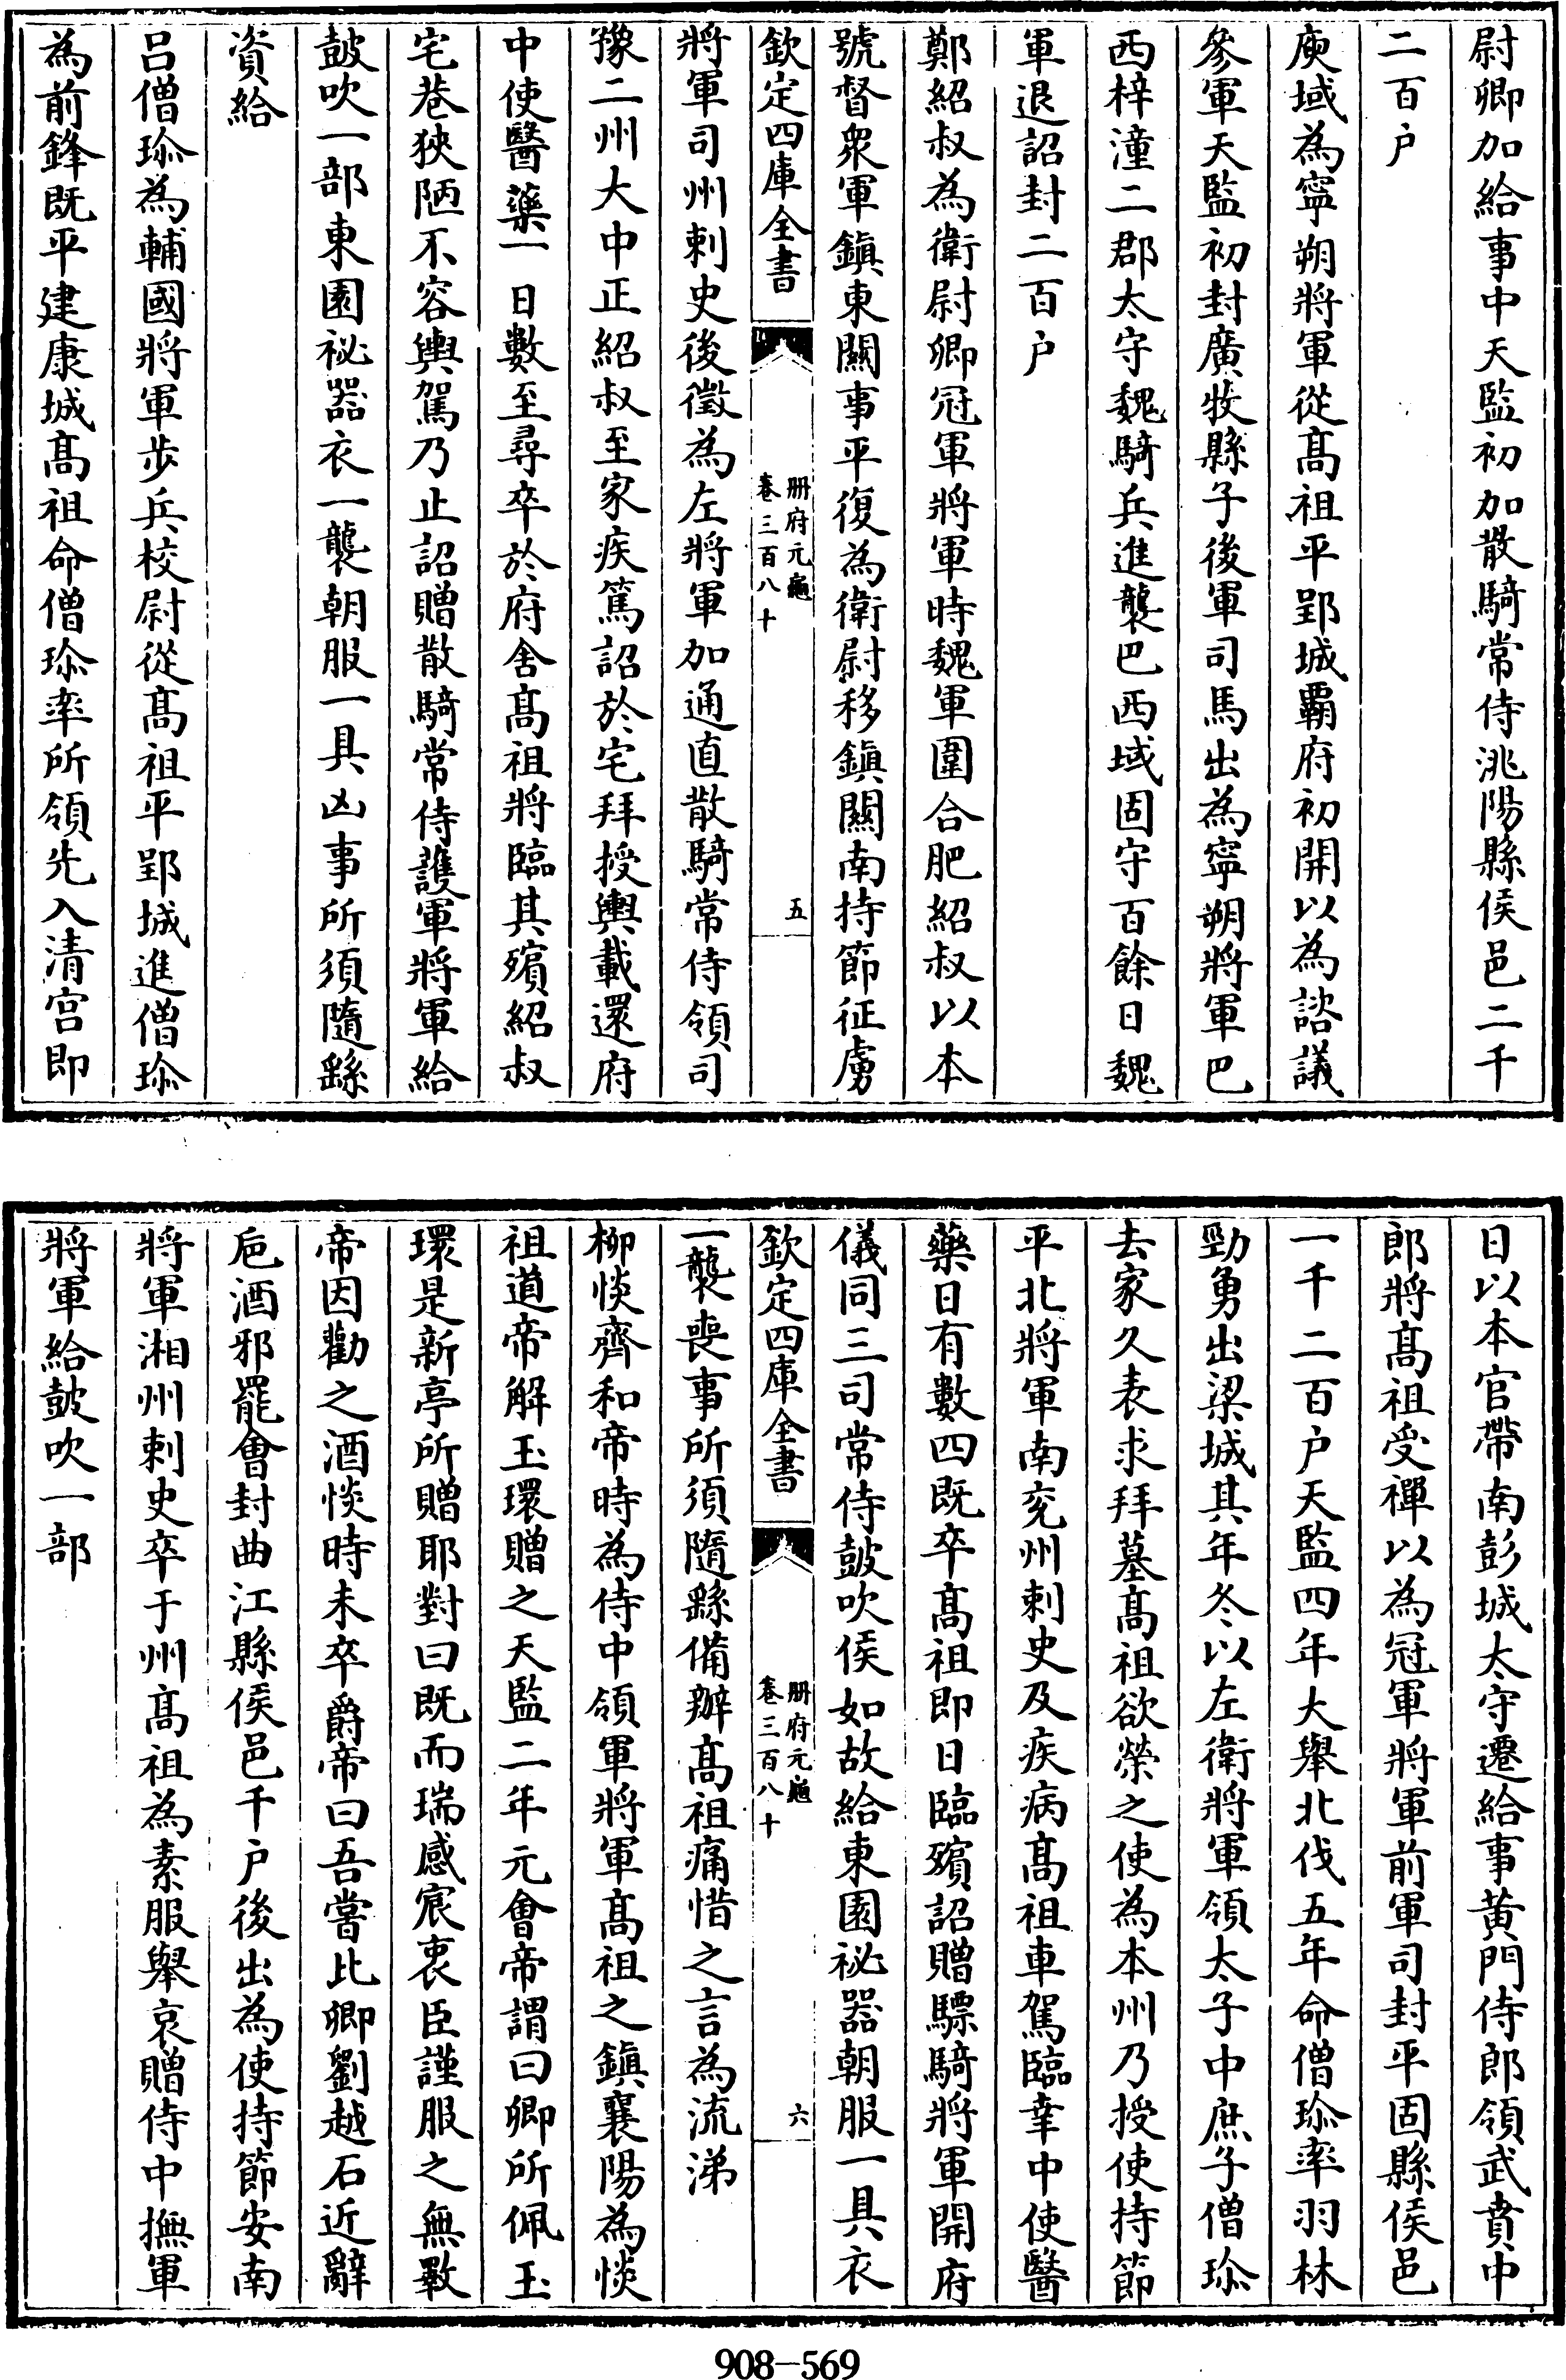 尉卿加給事中天監初加散騎常侍洮陽縣侯邑二千
二百户
庾域為寧朔將軍從髙祖平郢城覇府初開以為諮議
參軍天監初封廣牧縣子後軍司馬出為寧朔將軍巴
西梓潼二郡太守魏騎兵進襲巴西域固守百餘日魏
軍退詔封二百户
鄭紹叔為衛尉卿冠軍將軍時魏軍圍合肥紹叔以本
號督衆軍鎮東關事平復為衛尉移鎮關南持節征虜
欽定四庫全書
册府元龜
卷三百八十
五
將軍司州刺史後徵為左將軍加通直散騎常侍領司
豫二州大中正紹叔至家疾篤詔於宅拜授輿載還府
中使醫藥一日數至尋卒於府舍髙祖將臨其殯紹叔
宅巷狹陋不容輿駕乃止詔贈散騎常侍護軍將軍給
鼓吹一部東園祕器衣一襲朝服一具凶事所須隨繇
資給
吕僧珎為輔國將軍步兵校尉從髙祖平郢城進僧珎
為前鋒既平建康城髙祖命僧珎率所領先入清宫即
日以本官帶南彭城太守遷給事黄門侍郎領武賁中
郎將髙祖受禪以為冠軍將軍前軍司封平固縣侯邑
一千二百户天監四年大舉北伐五年命僧珎率羽林
勁勇出梁城其年冬以左衛將軍領太子中庶子僧珎
去家久表求拜墓髙祖欲榮之使為本州乃授使持節
平北將軍南兖州刺史及疾病髙祖車駕臨幸中使醫
藥日有數四既卒髙祖即日臨殯詔贈驃騎將軍開府
儀同三司常侍鼓吹侯如故給東園祕器朝服一具衣
欽定四庫全書
册府元龜
卷三百八十
六
一襲喪事所須隨繇備辦髙祖痛惜之言為流涕
栁惔齊和帝時為侍中領軍將軍髙祖之鎮襄陽為惔
祖道帝解玉環贈之天監二年元會帝謂曰卿所佩玉
環是新亭所贈耶對曰既而瑞感宸衷臣謹服之無斁
帝因勸之酒惔時未卒爵帝曰吾嘗比卿劉越石近辭
巵酒邪罷會封曲江縣侯邑千户後出為使持節安南
將軍湘州刺史卒于州髙祖為素服舉哀贈侍中撫軍
將軍給鼓吹一部
908－569